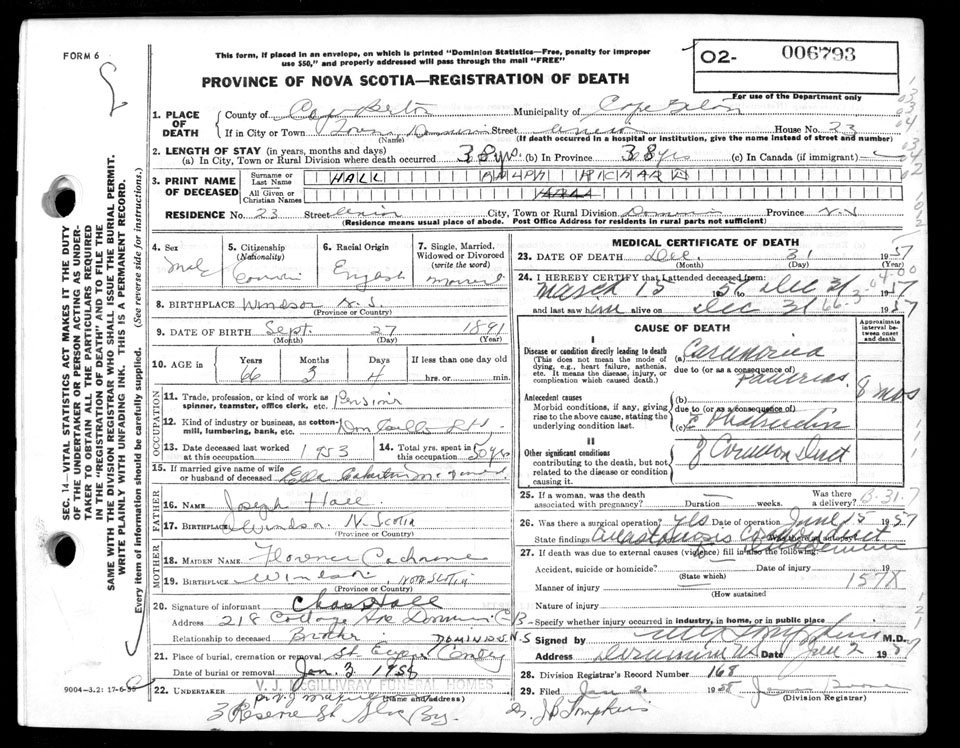 FORM 6
This form, if placed in an envelope, on which is printed "Dominion Statistics—Free, penalty for improper
use $50," and properly addressed will pass through the mail "FREE"
02- 006793
For use of the Department only
PROVINCE OF NOVA SCOTIA—REGISTRATION OF DEATH
1. PLACE OF DEATH
County of Cape Breton Municipality of Cape Breton
If in City or Town Dominion Street House No. 23
(Name) (If death occurred in a hospital or institution, give the name instead of street and number)
2. LENGTH OF STAY (in years, months and days)
(a) In City, Town or Rural Division where death occurred 38 yrs. (b) In Province 38 yrs (c) In Canada (if immigrant)
3. PRINT NAME OF DECEASED
Surname or Last Name HALL RALPH RICHARD
All Given or Christian Names HALL
RESIDENCE No. 23 Street Union City, Town or Rural Division Dominion Province N.S.
(Residence means usual place of abode. Post Office Address for residents in rural parts not sufficient)
4. Sex Male
5. Citizenship (Nationality)
6. Racial Origin English
7. Single, Married, Widowed or Divorced (write the word) Married
8. BIRTHPLACE Windsor N.S.
(Province or Country)
9. DATE OF BIRTH Sept. 27 1891
(Month) (Day) (Year)
10. AGE in Years Months Days If less than one day old
66 3 4 hrs. or min.
OCCUPATION
11. Trade, profession, or kind of work as spinner, teamster, office clerk, etc. Pensioner
12. Kind of industry or business, as cotton-mill, lumbering, bank, etc.
13. Date deceased last worked at this occupation 1953
14. Total yrs. spent in this occupation 50 yrs
15. If married give name of wife or husband of deceased Ella
FATHER
16. NAME Joseph Hall
17. BIRTHPLACE Windsor N. Scotia
(Province or Country)
MOTHER
18. MAIDEN NAME Florence Cochrane
19. BIRTHPLACE Windsor, Nova Scotia
(Province or Country)
20. Signature of informant Chas Hall
Address 218 Cottage Ave Dominion C.B
Relationship to deceased Brother DOMINION N.S
21. Place of burial, cremation or removal
Date of burial or removal Jan. 3 1958
22. UNDERTAKER V. J. McGILLIVRAY FUNERAL HOMES
(Name and address)
3 Reserve St Glace Bay.
9004-3.2: 17-6-55
MEDICAL CERTIFICATE OF DEATH
23. DATE OF DEATH Dec. 31 1957
(Month) (Day) (Year)
24. I HEREBY CERTIFY that I attended deceased from:
March 15 57 to Dec 31 1957
and last saw him alive on Dec 31 1957
CAUSE OF DEATH
Approximate interval between onset and death
I
Disease or condition directly leading to death
(This does not mean the mode of dying, e.g., heart failure, asthenia, etc. It means the disease, injury, or complication which caused death.)
(a) Carcinoma
due to (or as a consequence of) Pancreas. 8 mos
Antecedent causes
Morbid conditions, if any, giving rise to the above cause, stating the underlying condition last.
(b)
due to (or as a consequence of)
(c) Obstruction
of Common Duct
II
Other significant conditions
contributing to the death, but not related to the disease or condition causing it.
25. If a woman, was the death associated with pregnancy? Duration weeks. Was there a delivery?
26. Was there surgical operation? Yes Date of operation June 15 1957
State findings Was there autopsy?
27. If death was due to external causes (violence) fill in also the following:
Accident, suicide or homicide? Date of injury 19
(State which)
Manner of injury 157X
(How sustained)
Nature of injury
Specify whether injury occurred in industry, in home, or in public place
Signed by M.D.
Address Dominion N.S Date Jan 2 1957
28. Division Registrar's Record Number 168
29. Filed Jan 2 1958
(Division Registrar)
Dr. J B Tompkins
SEC. 14—VITAL STATISTICS ACT MAKES IT THE DUTY
OF THE UNDERTAKER OR PERSON ACTING AS UNDER-
TAKER TO OBTAIN ALL THE PARTICULARS REQUIRED
IN THE "REGISTRATION OF DEATH" AND TO FILE THE
SAME WITH THE DIVISION REGISTRAR WHO SHALL ISSUE THE BURIAL PERMIT.
WRITE PLAINLY WITH UNFADING INK. THIS IS A PERMANENT RECORD.
Every item of information should be carefully supplied. (See reverse side for instructions.)